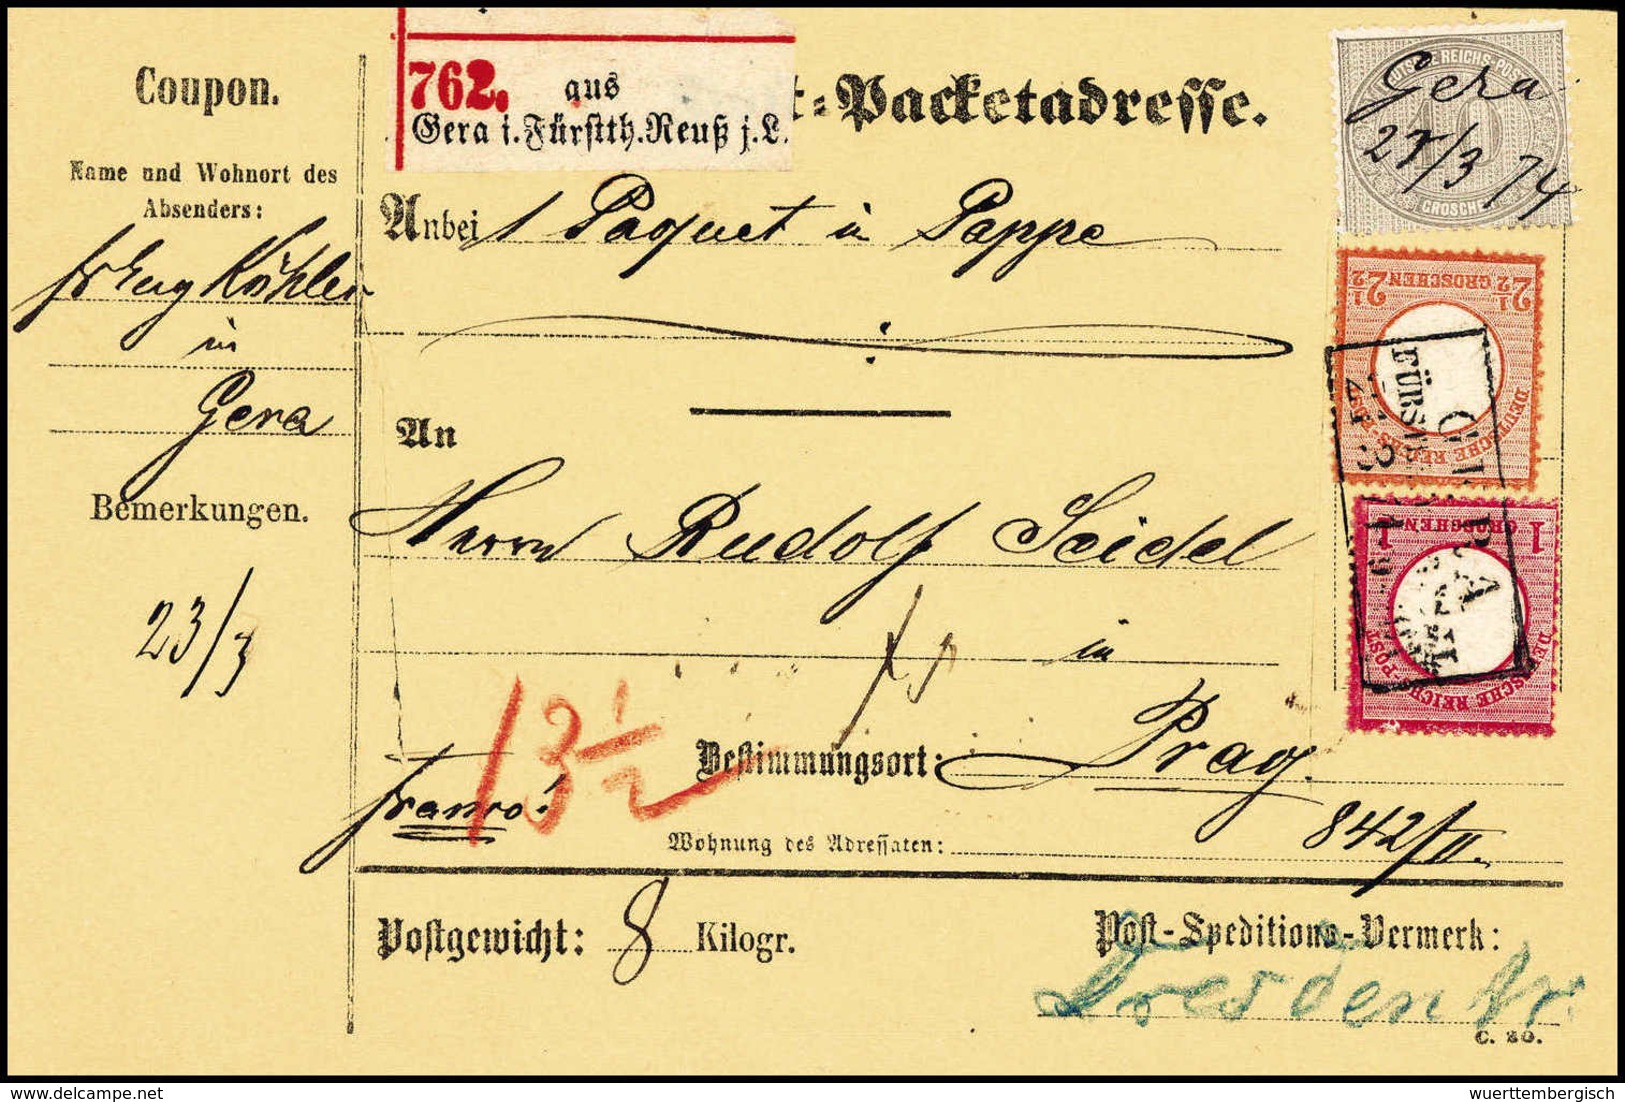 Coupon.
Name und Wohnort des
Absenders:
Köhler
in
Gera
Bemerkungen.
23/3
762. aus
Gera i. Fürstth. Reuß j. L.
t-Packetadresse.
Anbei 1 Paquet in Pappe
An
Herrn Rudolf Seidel
in
Bestimmungsort: Prag.
13 1/2
franco!
Wohnung des Adressaten: 842/II.
Postgewicht: 8 Kilogr.
Post-Speditions-Vermerk:
Dresden
C. 20.
DEUTSCHE REICHS-POST
10
GROSCHEN
Gera
27/3 74
2½ 2½
GROSCHEN
DEUTSCHE REICHS-POST
1 1
GROSCHEN
DEUTSCHE REICHS-POST
GERA
FÜRST
delcampe.net
wuerttembergisch